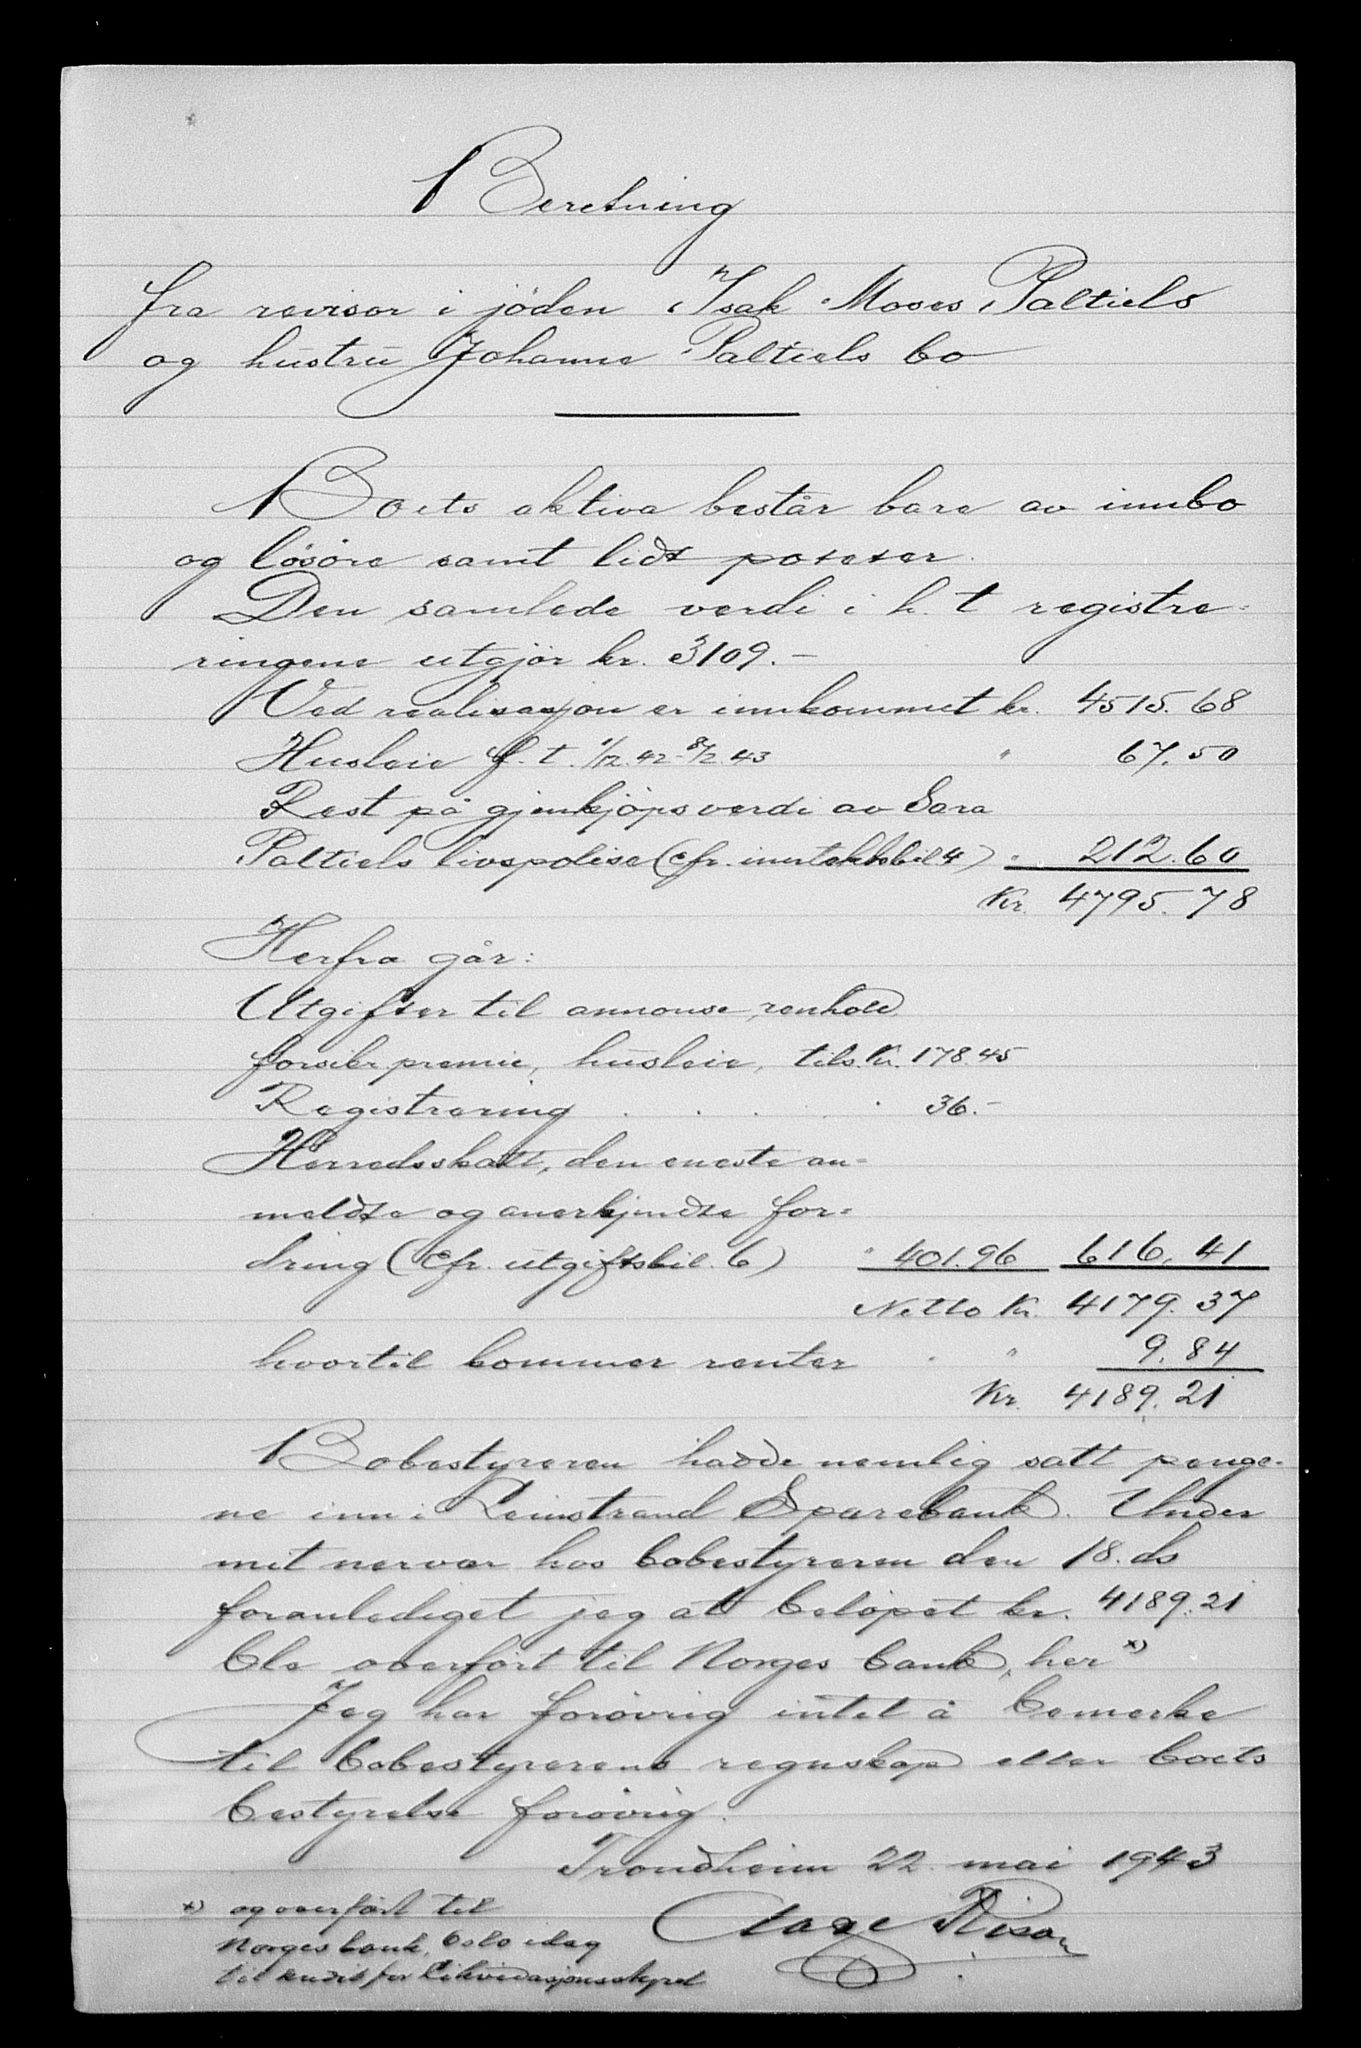 Beretning
fra revisor i jøden Isak Moses Paltiels
og hustru Johanne Paltiels bo
Boets aktiva består bare av innbo
og løsøre samt lidt poteter.
Den samlede verdi i h. t registre-
ringene utgjør kr. 3109.-
Ved realisasjon er innkommet kr. 4515.68
Husleie f. t. 1/12.42 - 8/2.43 " 67.50
Rest på gjenkjøpsverdi av Sara
Paltiels livspolise (cfr. inntektsbil 4) " 212.60
Kr. 4795.78
Herfra går:
Utgifter til annonse, renhold
forsikr premie, husleie, tils. Kr. 178.45
Registrering . . . . . 36.-
Herredsskatt, den eneste an-
meldte og anerkjendte for-
dring (cfr. utgiftsbil. 6) " 401.96 616.41
Netto Kr. 4179.37
hvortil kommer renter . " 9.84
Kr. 4189.21
Bobestyreren hadde nemlig satt penge-
ne inn i Leinstrand Sparebank. Under
mit nervær hos bobestyreren den 18. ds
foranlediget jeg at beløpet kr. 4189.21
ble overført til Norges bank, her x)
Jeg har forøvrig intet å bemerke
til bobestyrerens regnskap eller boets
bestyrelse forøvrig.
Trondheim 22. mai 1943
Aage
x) og overført til
Norges bank, Oslo idag
til kredit for Likvidasjonsstyret